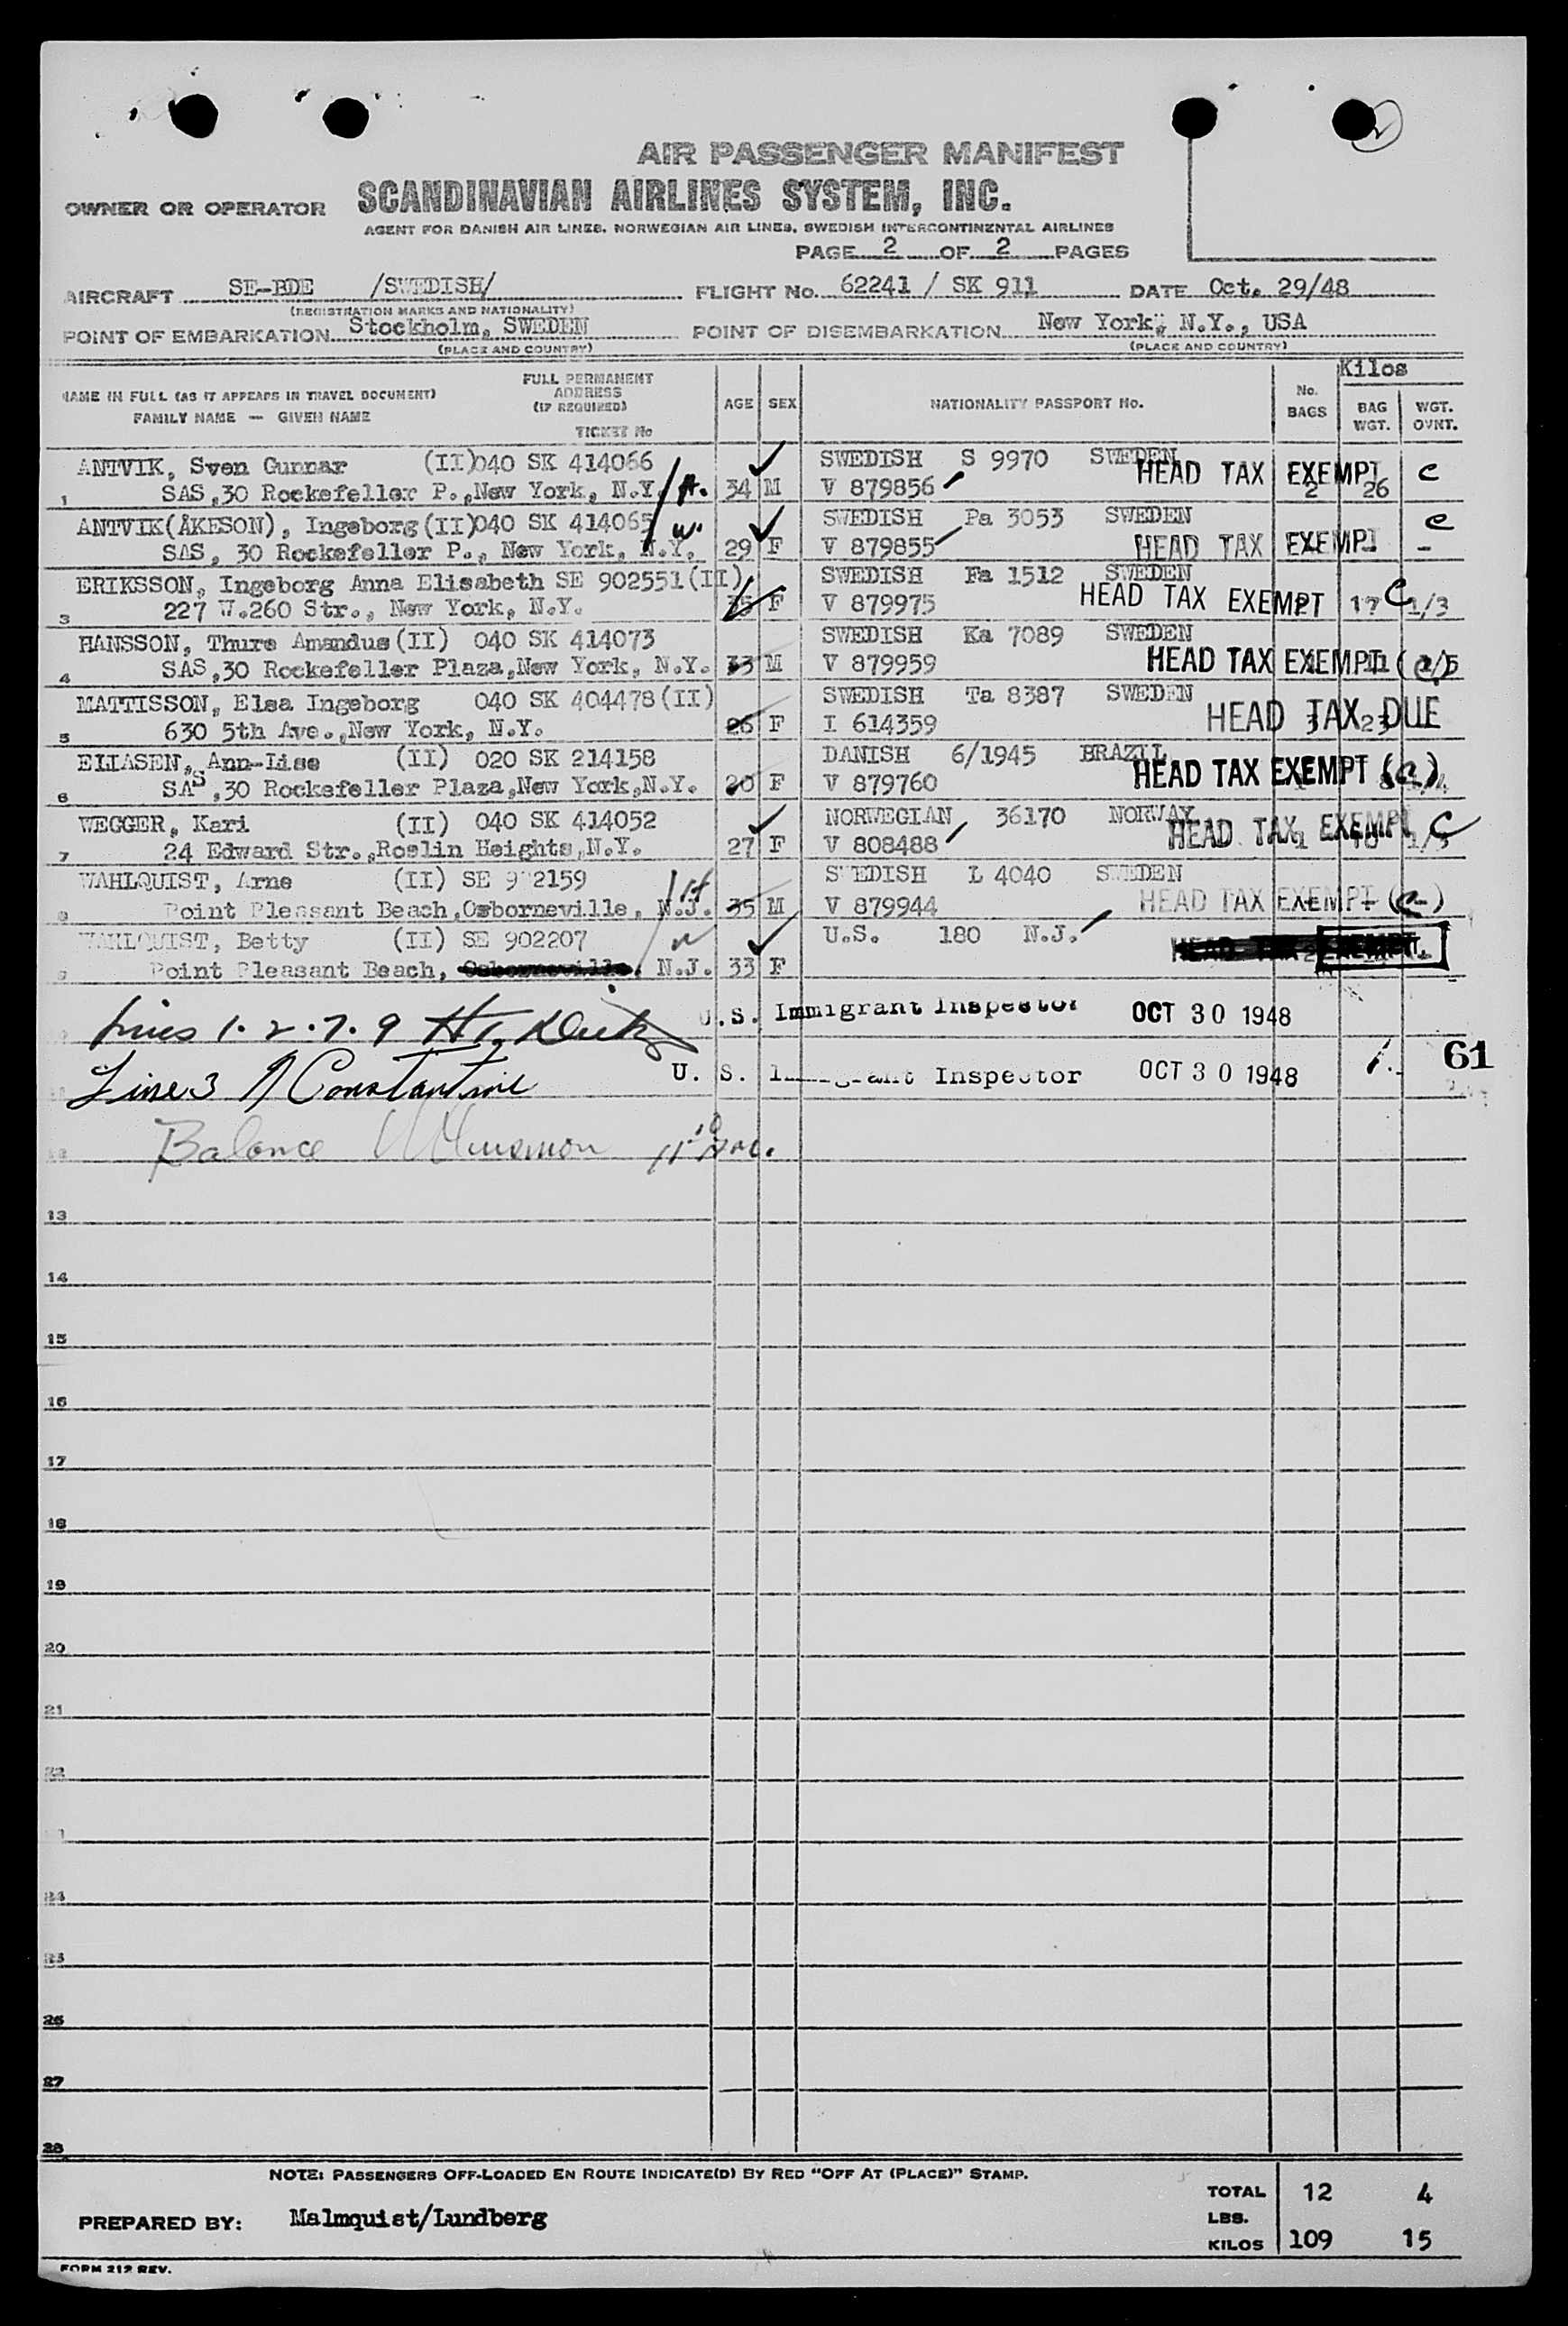 AIR PASSENGER MANIFEST
OWNER OR OPERATOR SCANDINAVIAN AIRLINES SYSTEM, INC.
AGENT FOR DANISH AIR LINES, NORWEGIAN AIR LINES, SWEDISH INTERCONTINENTAL AIRLINES
PAGE 2 OF 2 PAGES
AIRCRAFT SE-BDE /SWEDISH/ FLIGHT No. 62241 / SK 911 DATE Oct. 29/48
(REGISTRATION MARKS AND NATIONALITY)
POINT OF EMBARKATION Stockholm, SWEDEN POINT OF DISEMBARKATION New York, N.Y., USA
(PLACE AND COUNTRY) (PLACE AND COUNTRY)
Kilos
NAME IN FULL (AS IT APPEARS IN TRAVEL DOCUMENT) FULL PERMANENT ADDRESS (IF REQUIRED) AGE SEX NATIONALITY PASSPORT No. No. BAGS BAG WGT. WGT. OVNT.
FAMILY NAME — GIVEN NAME TICKET No
ANTVIK, Sven Gunnar (II)040 SK 414066 SWEDISH S 9970 SWEDEN HEAD TAX EXEMPT c
1 SAS,30 Rockefeller P.,New York, N.Y. H. 34 M V 879856 2 26
ANTVIK(ÅKESON), Ingeborg(II)040 SK 414065 w. SWEDISH Pa 3053 SWEDEN c
SAS, 30 Rockefeller P., New York, N.Y. 29 F V 879855 HEAD TAX EXEMPT -
ERIKSSON, Ingeborg Anna Elisabeth SE 902551(II) SWEDISH Fa 1512 SWEDEN
3 227 W.260 Str., New York, N.Y. 35 F V 879975 HEAD TAX EXEMPT 17 C 1/3
HANSSON, Thure Amandus(II) 040 SK 414073 SWEDISH Ka 7089 SWEDEN
4 SAS,30 Rockefeller Plaza,New York, N.Y. 33 M V 879959 HEAD TAX EXEMPT (c)
MATTISSON, Elsa Ingeborg 040 SK 404478(II) SWEDISH Ta 8387 SWEDEN
5 630 5th Ave.,New York, N.Y. 26 F I 614359 HEAD TAX DUE
ELIASEN, Ann-Lise (II) 020 SK 214158 DANISH 6/1945 BRAZIL
6 SAS,30 Rockefeller Plaza,New York,N.Y. 20 F V 879760 HEAD TAX EXEMPT (c)
WEGGER, Kari (II) 040 SK 414052 NORWEGIAN 36170 NORWAY
7 24 Edward Str.,Roslin Heights,N.Y. 27 F V 808488 HEAD TAX EXEMPT C
WAHLQUIST, Arne (II) SE 902159 H SWEDISH L 4040 SWEDEN
Point Pleasant Beach,Osborneville, N.J. 35 M V 879944 HEAD TAX EXEMPT (c)
WAHLQUIST, Betty (II) SE 902207 w U.S. 180 N.J.
Point Pleasant Beach, Osborneville, N.J. 33 F HEAD TAX EXEMPT
Lines 1. 2. 7. 9 U.S. Immigrant Inspector OCT 30 1948
Line 3 Constantine U. S. Immigrant Inspector OCT 30 1948 61
Balance
13
14
15
16
17
18
19
20
21
22
24
25
26
27
28
NOTE: PASSENGERS OFF-LOADED EN ROUTE INDICATE(D) BY RED "OFF AT (PLACE)" STAMP.
PREPARED BY: Malmquist/Lundberg
TOTAL 12 4
LBS.
KILOS 109 15
FORM 212 REV.